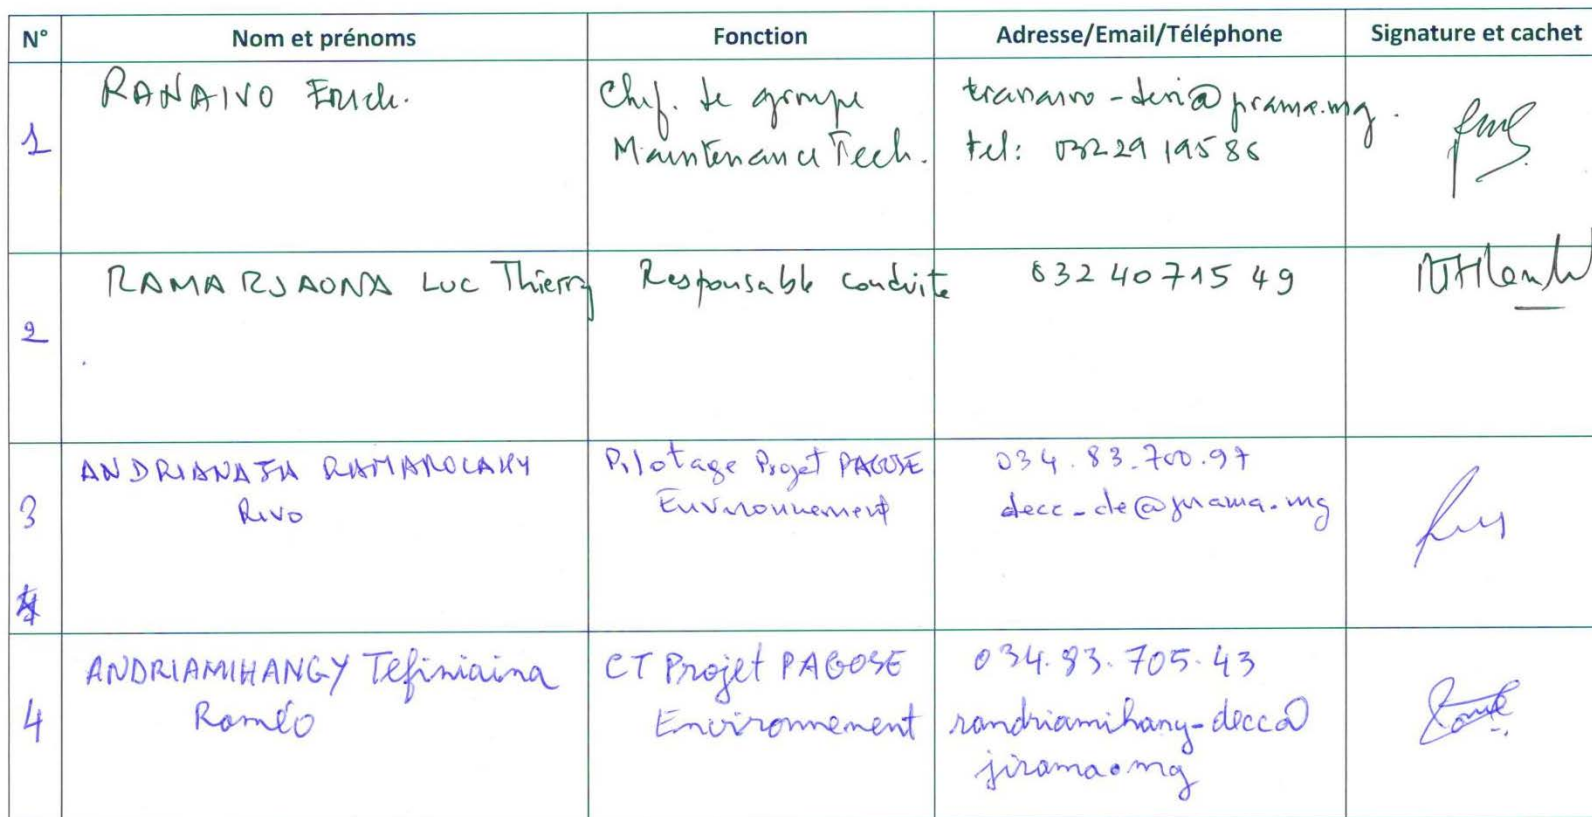 N° Nom et prénoms Fonction Adresse/Email/Téléphone Signature et cachet
1 RANAIVO Erick. Chef. de groupe
Maintenance Tech.
tel: 032 29 195 86
2 RAMARJAONA Luc Thierry Responsable conduite 032 40 715 49
3 Rivo
Pilotage Projet PAGOSE
Environnement
034.83.700.97
decc-de@jirama.mg
4 ANDRIAMIHANGY Tefiniaina
Roméo
CT Projet PAGOSE
Environnement
034.83.705.43
randriamihany-decc@
jirama.mg